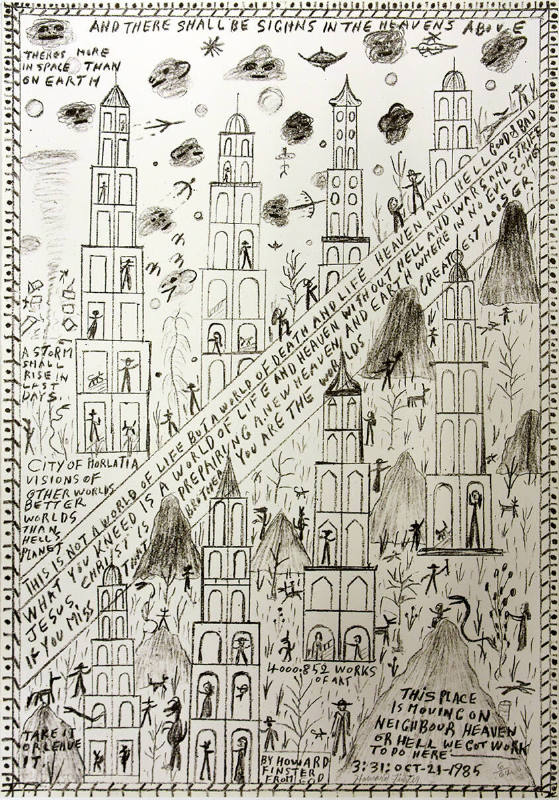 AND THERE SHALL BE SIGHNS IN THE HEAVENS ABOVE
THERES MORE
IN SPACE THAN
ON EARTH
A STORM
SHALL
RISE IN
LAST
DAYS.
CITY OF MORLATIA
VISIONS OF
OTHER WORLDS
BETTER
WORLDS
THAN
HELL'S
PLANET
THIS IS NOT A WORLD OF LIFE BUT A WORLD OF DEATH AND LIFE HEAVEN AND HELL GOOD & BAD
WHAT YOU KNEED IS A WORLD OF LIFE AND HEAVEN WITHOUT HELL AND WARS AND STRIFE
JESUS CHRIST IS PREPAIRYNG A NEW HEAVEN AND EARTH WHERE IN NO EVIL COME
IF YOU MISS THAT BROTHER YOU ARE THE WORLDS GREATEST LOOSER
TAKE IT
OR LEAVE
IT.
4000.852 WORKS
OF ART
BY HOWARD
FINSTERD
FROM GOD
THIS PLACE
IS MOVING ON
NEIGHBOUR HEAVEN
OR HELL WE GOT WORK
TO DO HERE
3:31: OCT-21-1985
Howard Finster